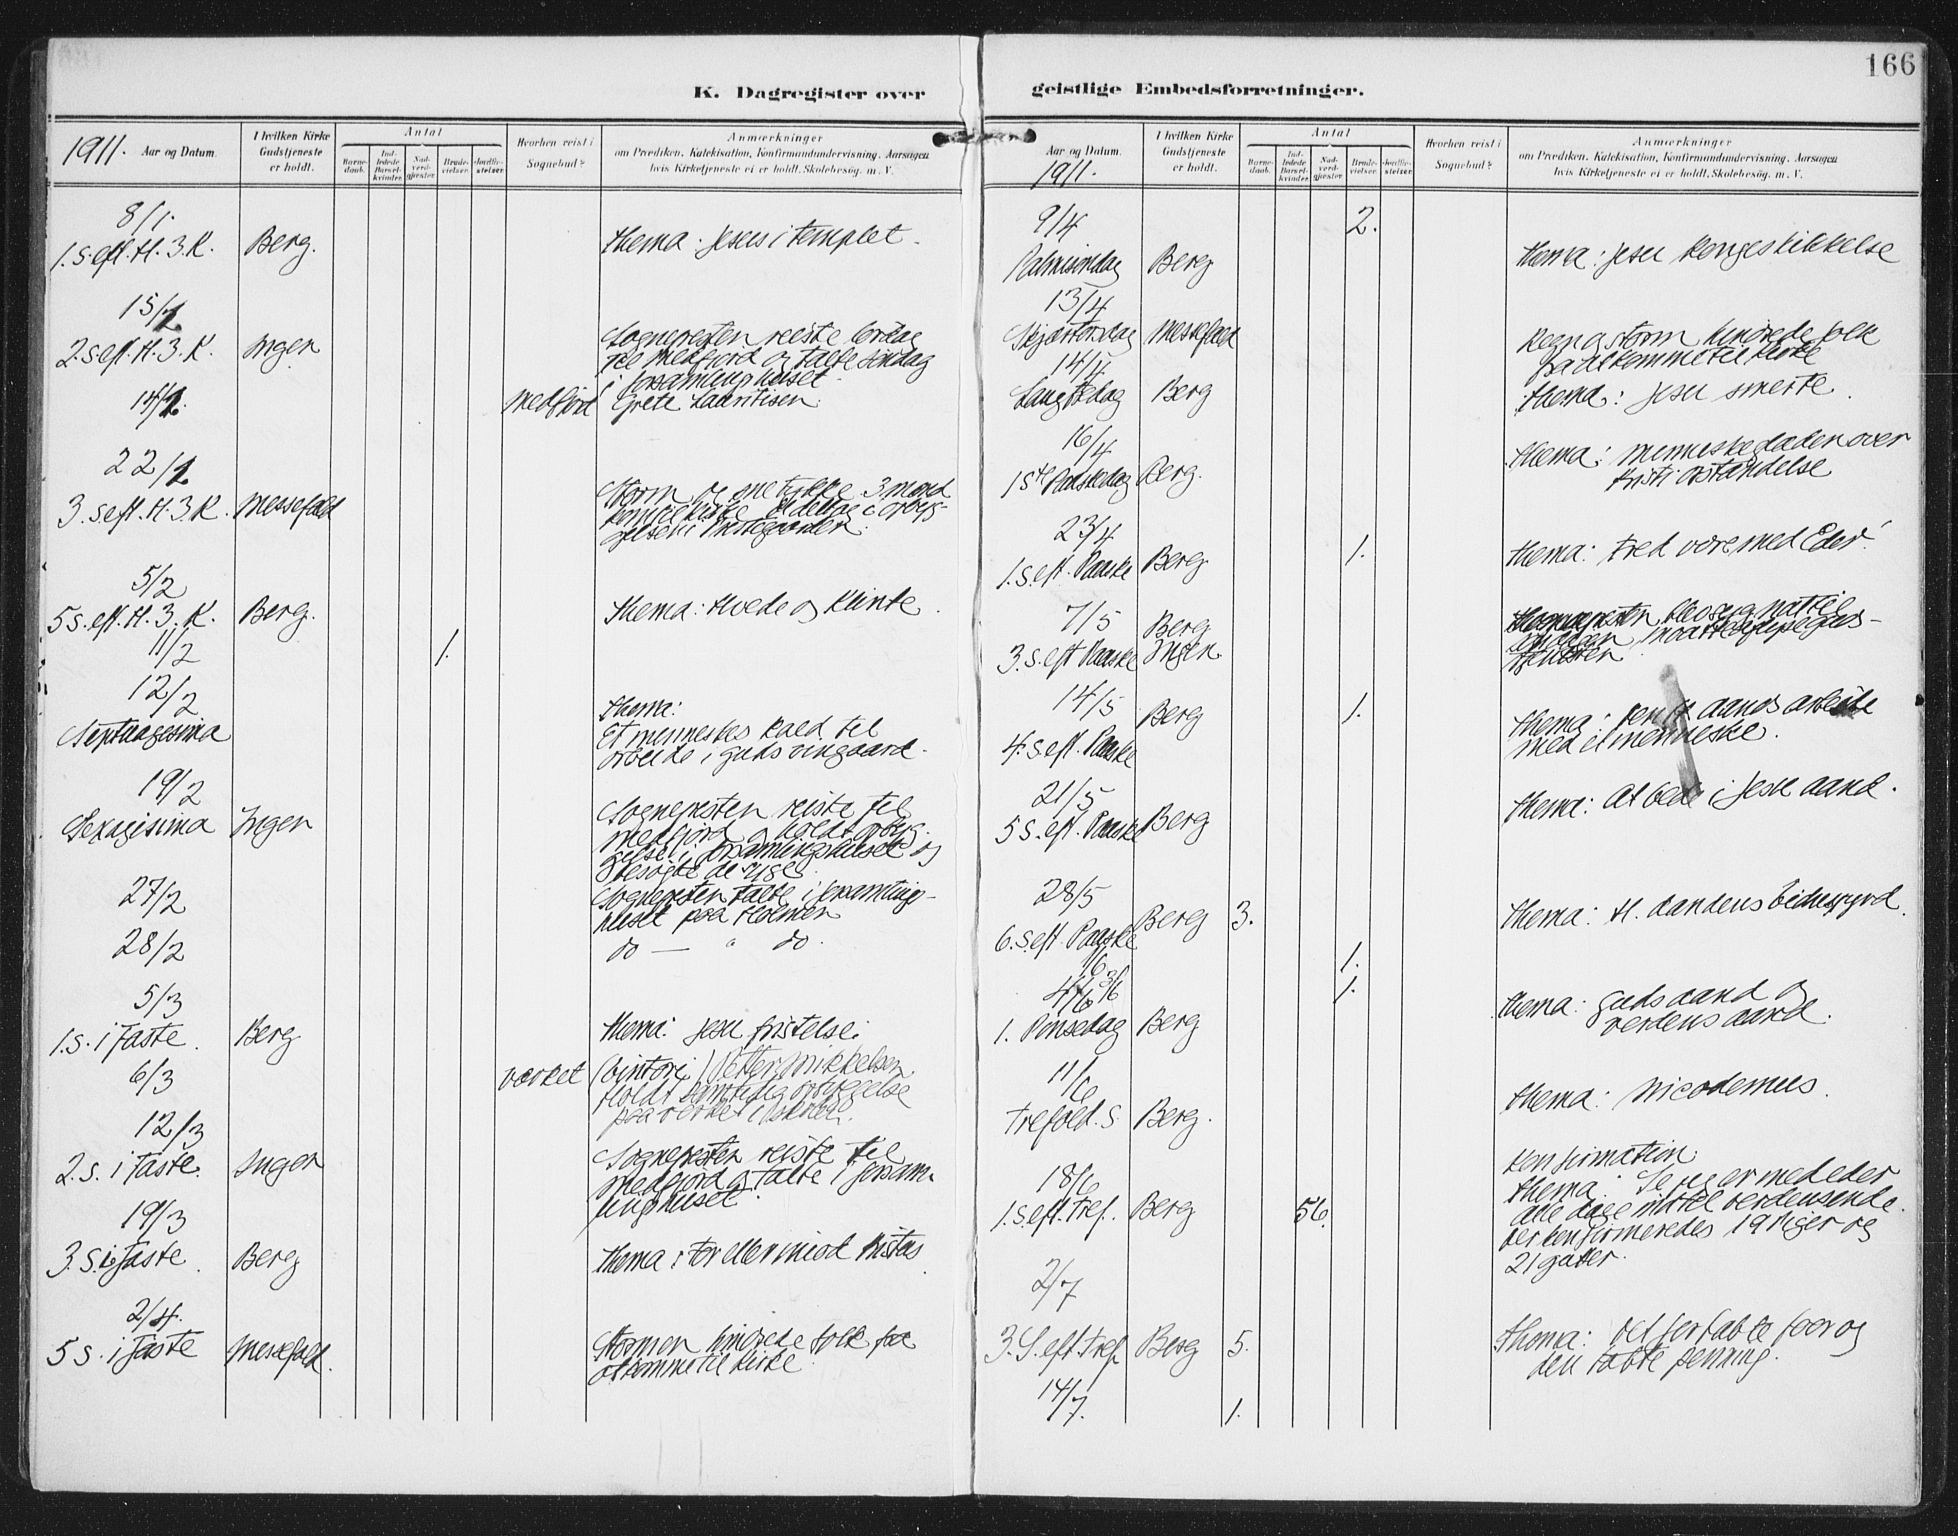 166
K. Dagregister over
geistlige Embedsforretninger.
1911.
Aar og Datum.
I hvilken Kirke Gudstjeneste er holdt.
Antal
Barne-daab.
Ind-ledede Barsel-kvinder.
Nad-verd-gjæster.
Brude-vielser.
Jordfæ-stelser.
Hvorhen reist i Sognebud?
Anmærkninger
om Prædiken, Katekisation, Konfirmandundervisning. Aarsagen
hvis Kirketjeneste ei er holdt. Skolebesøg. m. V.
8/1
1. S. eft. H. 3. K. Berg. Thema: Jesus i templet.
15/1
2. S. eft. H. 3. K. Ingen Sognepresten reiste lørdag
til Medfjord og talte søndag
i forsamlingshuset.
14/1. Medfjord Grete Lauritsen.
22/1
3. S. eft. H. 3. K. Messefald Storm og snetykke. 3 mænd
kom til kirke
i Prestegaarden.
5/2
5 S. eft. H. 3. K. Berg. Thema: Hvede og Klinte.
11/2 1.
12/2
Septuagesima
Thema:
Et menneskes kald til
arbeide i guds vingaard.
19/2
Sexagesima Ingen Sognepresten reiste til
Medfjord og holdt opbyg-
gelse i forsamlingshuset og
besøgte de syge.
27/2 Sognepresten talte i forsamlings-
huset paa Holmen
28/2 do — " do.
5/3
1. S. i Faste. Berg Thema: Jesu fristelse.
6/3 Værket Petter Mikkelsen.
Holdt samtidig opbyggelse
paa verket i skolen.
12/3
2. S. i Faste. Ingen Sognepresten reiste til
Medfjord og talte i forsam-
lingshuset.
19/3
3. S. i Faste. Berg Thema: For eller imod Kristus
2/4.
5 S. i Faste Messefald. Stormen hindrede folk fra
at komme til kirke.
Aar og Datum.
1911.
I hvilken Kirke Gudstjeneste er holdt.
Antal
Barne-daab.
Ind-ledede Barsel-kvinder.
Nad-verd-gjæster.
Brude-vielser.
Jordfæ-stelser.
Hvorhen reist i Sognebud?
Anmærkninger
om Prædiken, Katekisation, Konfirmandundervisning. Aarsagen
hvis Kirketjeneste ei er holdt. Skolebesøg. m. V.
9/4 2.
Palmesøndag Berg Thema: Jesu kongeskikkelse
13/4
Skjærtorsdag Messefald Regn og storm hindrede folk
fra at komme til kirke
14/4
Langfredag Berg Thema: Jesu smerte.
16/4
1ste Paaskedag Berg. Thema: Menneskeglæden over
Kristi opstandelse
23/4
1. S. eft. Paaske Berg 1. Thema: Fred være med Eder!
7/5 Berg
3. S. eft Paaske Ingen.
14/5
4. S. eft. Paaske Berg 1. Thema: Den H. aands arbeide
med et menneske.
21/5
5 S. eft. Paaske Berg Thema: At bede i Jesu aand.
28/5
6. S. eft. Paaske Berg 3. Thema: H. Aandens vidnesbyrd.
1/6 1.
3/6 1.
4/6
1. Pinsedag Berg Thema: Guds aand og
verdens aand.
11/6
Trefold. S. Berg. Thema: Nicodemus.
18/6
1. S. eft. Tref. Berg 56. Konfirmation.
Thema: Se jeg er med eder
alle dage indtil verdens ende.
Der konfirmeredes 19 piger og
21 gutter.
2/7
3. S. eft. Tref. Berg 5. Thema: Det fortabte faar og
den tabte penning.
14/7. 1.